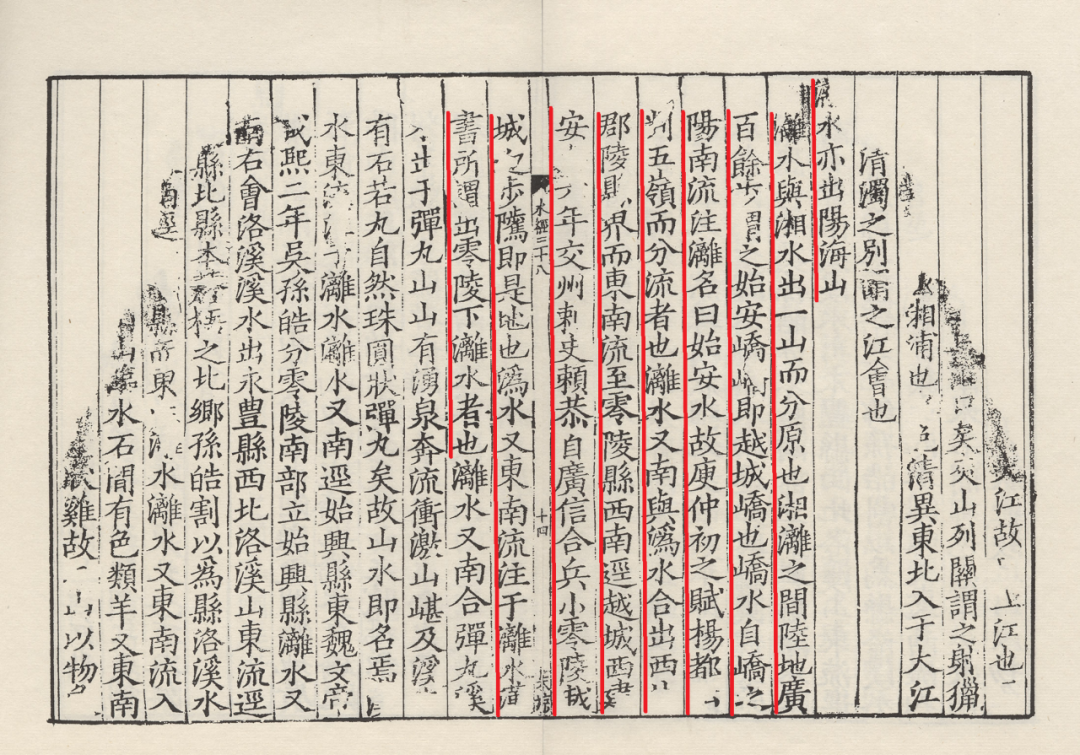 江故上江也
矣矣山列關謂之射獵
湘浦也清異東北入于大江
清濁之別謂之江會也
灕水亦出陽海山
灕水與湘水出一山而分原也湘灕之間陸地廣
百餘步謂之始安嶠嶠即越城嶠也嶠水自嶠之
陽南流注灕名曰始安水故庾仲初之賦楊都
判五嶺而分流者也灕水又南與溈水合出西
郡陵縣界而東南流至零陵縣西南逕越城西建
安六年交州刾史賴恭自廣信合兵小零陵越
水經三十八 十四
城之步騭即是地也溈水又東南流注于灕水漢
書所謂出零陵下灕水者也灕水又南合彈丸溪
出于彈丸山山有湧泉奔流衝激山嵁及溪
有石若丸自然珠圓狀彈丸矣故山水即名焉
水東流注于灕水灕水又南逕始興縣東魏文帝
咸熙二年吳孫皓分零陵南部立始興縣灕水又
南右會洛溪溪水出永豐縣西北洛溪山東流逕
縣北縣本蒼梧之北鄉孫皓割以為縣洛溪水
南逕縣而東水灕水又東南流入
水石間有色類羊又東南
雞故山以物